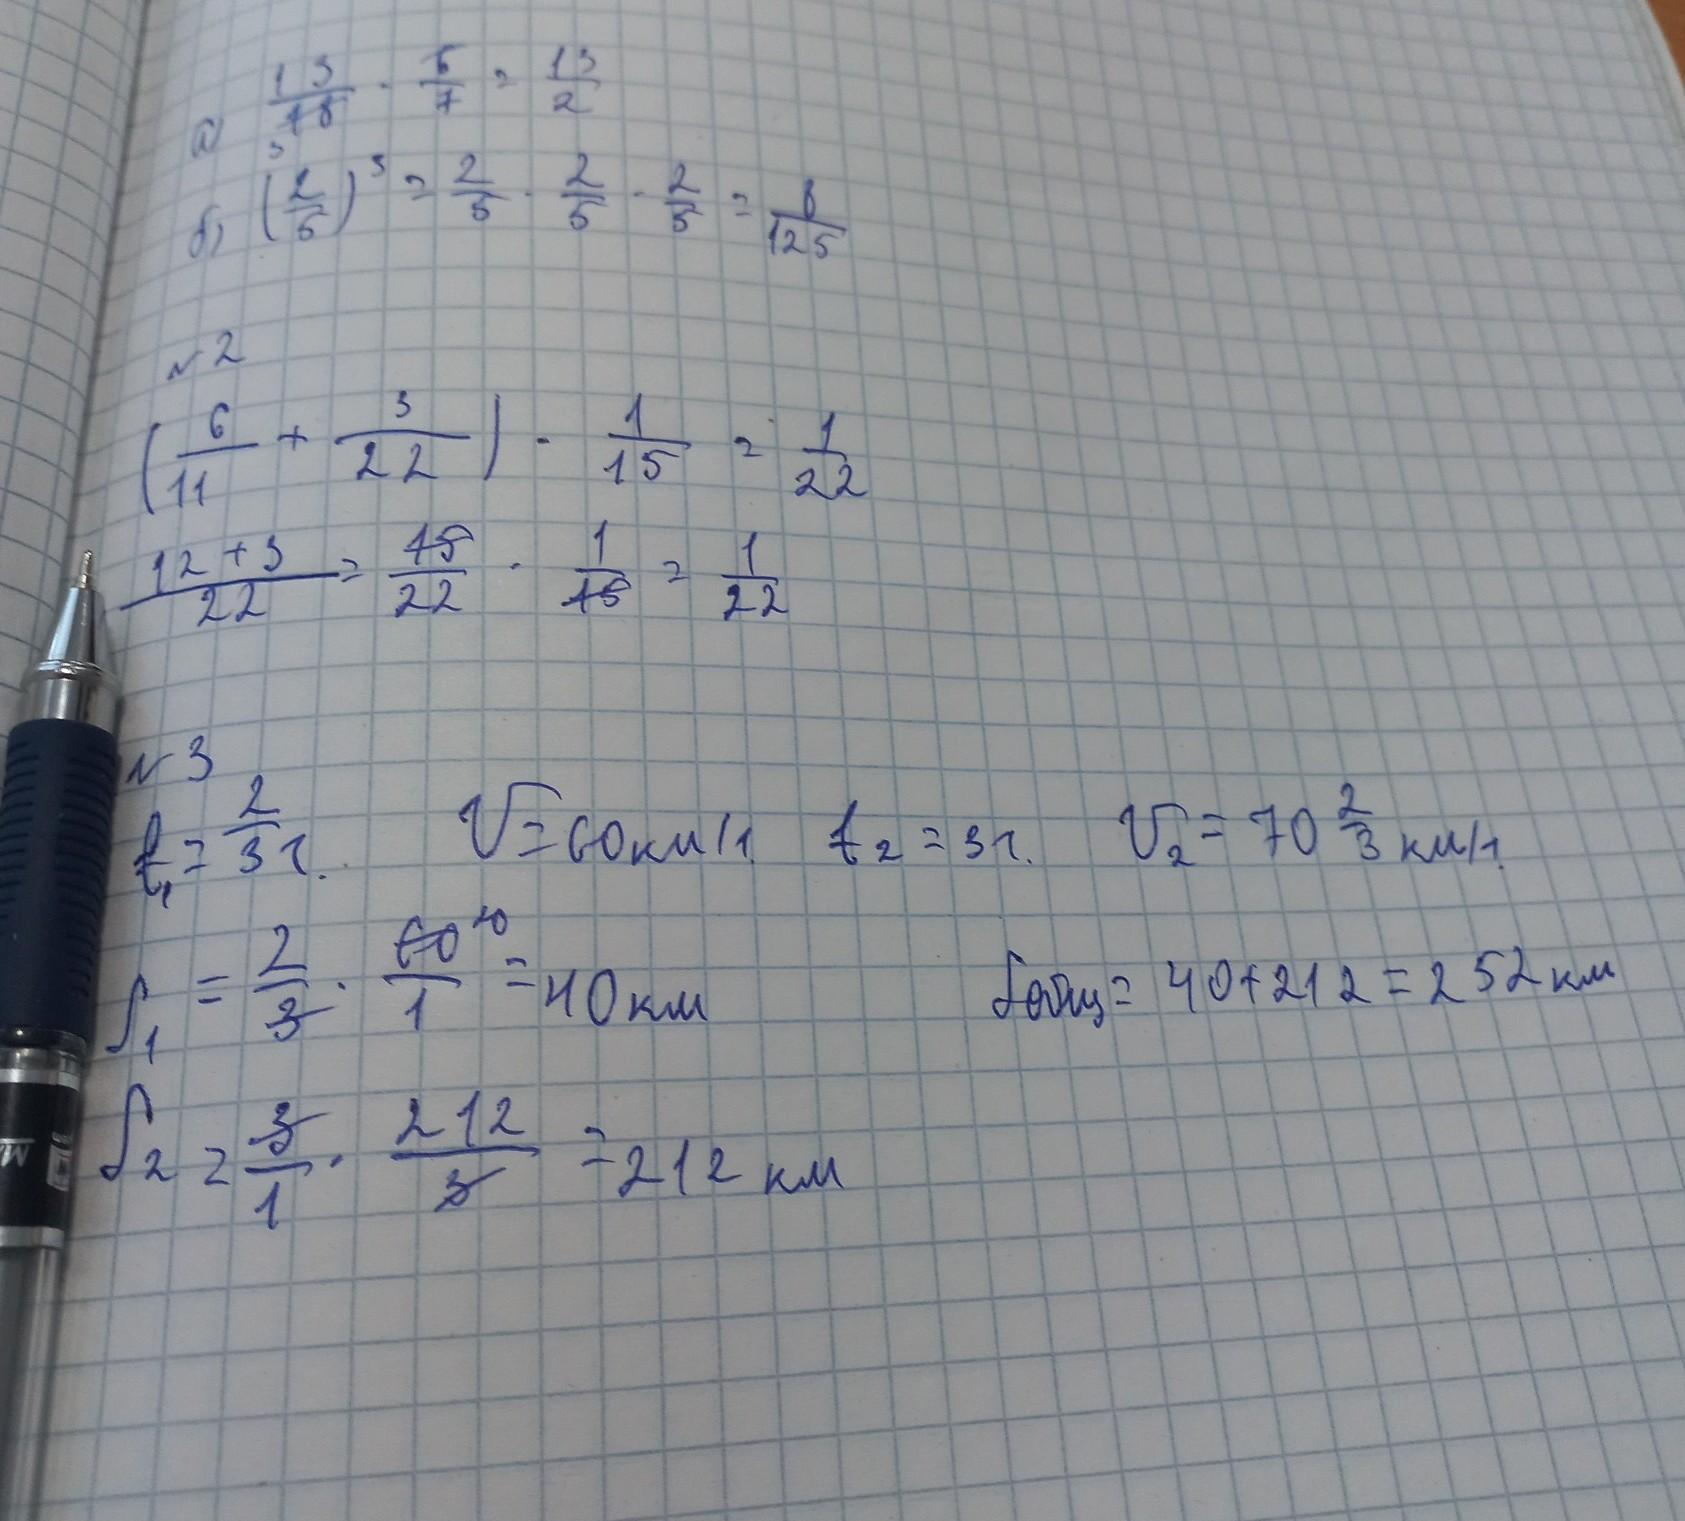 а) 13/18 · 6/7 = 13/2
3
б) (2/5)³ = 2/5 · 2/5 · 2/5 = 8/125
№2
(6/11 + 3/22) · 1/15 = 1/22
12+3/22 = 15/22 · 1/15 = 1/22
№3
t₁ = 2/3 ч. V = 60 км/ч t₂ = 3 ч. V₂ = 70 2/3 км/ч
S₁ = 2/3 · 60/1 ²⁰ = 40 км Sобщ = 40+212 = 252 км
S₂ = 3/1 · 212/3 = 212 км